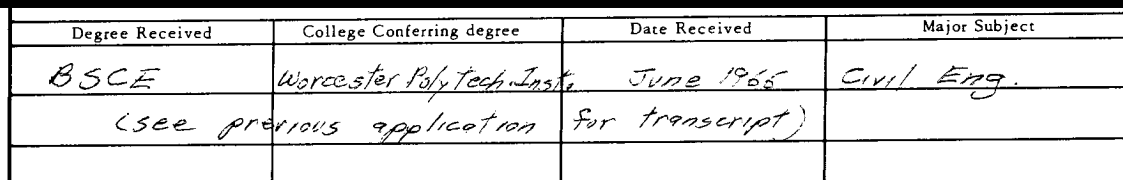 Degree Received College Conferring degree Date Received Major Subject
BSCE Worcester Polytech. Inst. June 1965 Civil Eng.
(see previous application for transcript)